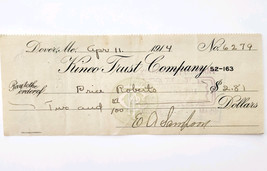 Dover, Mo. Apr 11 1914 No. 6279
Kinco Trust Company 52-163
Pay to the order of Price Roberts $2.81
Two and 81/100 Dollars
E. A. Sampson